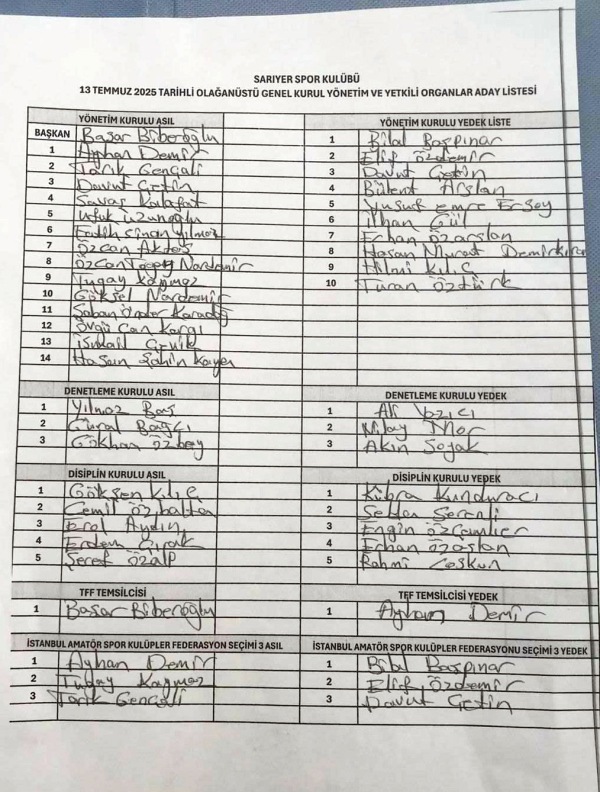 SARIYER SPOR KULÜBÜ
13 TEMMUZ 2025 TARİHLİ OLAĞANÜSTÜ GENEL KURUL YÖNETİM VE YETKİLİ ORGANLAR ADAY LİSTESİ
YÖNETİM KURULU ASIL
BAŞKAN Başar Biberoğlu
1 Ayhan Demir
2 Tarık Gençali
3 Davut Çetin
4 Savaş Kalafat
5 Ufuk Uzunoğlu
6 Fatih Sinan Yılmaz
7 Özcan Aktaş
8 Özcan Nardemir
9 Tugay Kaymaz
10 Göksel Nardemir
11 Şaban Önder Karadağ
12 Övgü Can Kargı
13 İsmail
14 Hasan Şahin Kaya
YÖNETİM KURULU YEDEK LİSTE
1 Bilal Başpınar
2 Elif Özdemir
3 Davut Çetin
4 Bülent Arslan
5 Yusuf emre Ersoy
6 İlhan Gül
7 Erhan Özarslan
8 Hasan Murat Demirkıran
9 Hilmi Kılıç
10 Turan Öztürk
DENETLEME KURULU ASIL
1 Yılmaz Baş
2 Gürol Bağcı
3 Gökhan Özbey
DENETLEME KURULU YEDEK
1 Ali Yazıcı
2 Nilay Mor
3 Akın Soyak
DİSİPLİN KURULU ASIL
1 Gökşen Kılıç
2 Cemil Özhaltan
3 Erol Aydın
4 Erdem Çırak
5 Şeref Özalp
DİSİPLİN KURULU YEDEK
1 Kübra Kunduracı
2 Serenli
3 Engin Özçamlıer
4 Erhan Özaslan
5 Rahmi Coşkun
TFF TEMSİLCİSİ
1 Başar Biberoğlu
TFF TEMSİLCİSİ YEDEK
1 Ayhan Demir
İSTANBUL AMATÖR SPOR KULÜPLER FEDERASYON SEÇİMİ 3 ASIL
1 Ayhan Demir
2 Tugay Kaymaz
3 Tarık Gençali
İSTANBUL AMATÖR SPOR KULÜPLER FEDERASYONU SEÇİMİ 3 YEDEK
1 Bilal Başpınar
2 Elif Özdemir
3 Davut Çetin